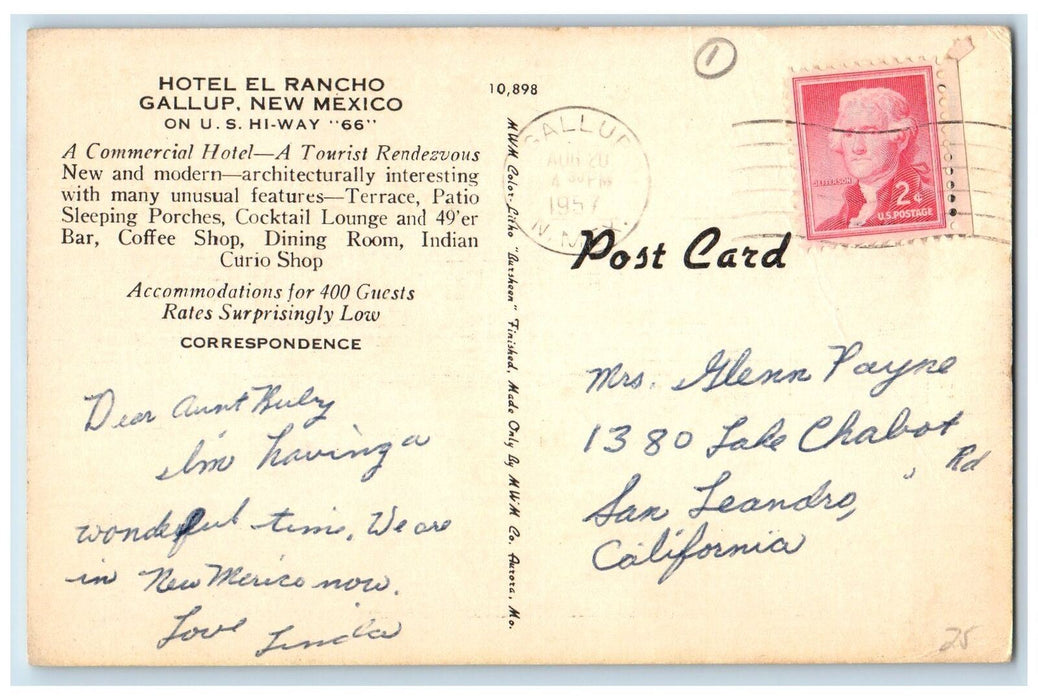 HOTEL EL RANCHO
GALLUP, NEW MEXICO
ON U.S. HI-WAY "66"
A Commercial Hotel—A Tourist Rendezvous
New and modern—architecturally interesting
with many unusual features—Terrace, Patio
Sleeping Porches, Cocktail Lounge and 49'er
Bar, Coffee Shop, Dining Room, Indian
Curio Shop
Accommodations for 400 Guests
Rates Surprisingly Low
CORRESPONDENCE
Dear Aunt Ruby
I'm having a
wonderful time. We are
in New Mexico now.
Love Linda
10,898
MWM Color-Litho "Bursheen" Finished. Made Only By MWM Co. Aurora, Mo.
1
GALLUP
AUG 20
4 30 PM
1957
N. MEX.
JEFFERSON
2¢
U.S. POSTAGE
Post Card
Mrs. Glenn Payne
1380 Lake Chabot
Rd
San Leandro,
California
25